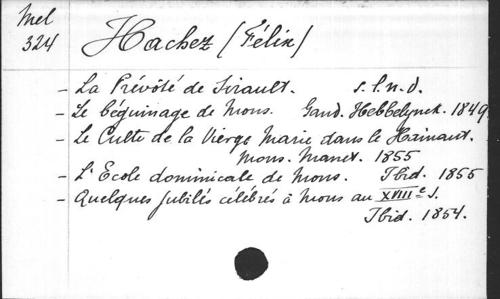 Mel
324
Hachez (Félix)
- La Prévôté de Sirault. s.l.n.d.
- Le béguinage de Mons. Gand. Hebbelynck. 1849.
- Le Culte de la Vierge Marie dans le Hainaut.
Mons. Manet. 1855
- L'Ecole dominicale de Mons. Ibid. 1855
- Quelques Jubilés célébrés à Mons au XVIIIe S.
Ibid. 1854.